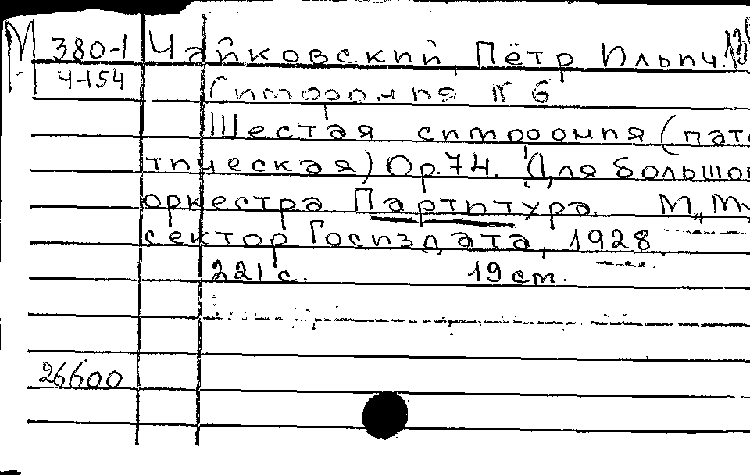 М 380-1 Чайковский, Пётр Ильич.
Ч-154
Симфония № 6
Шестая симфония (пате
тическая) Op. 74. Для большого
оркестра Партитура. М., Муз
сектор Госиздата, 1928.
221 с. 19 см.
26600